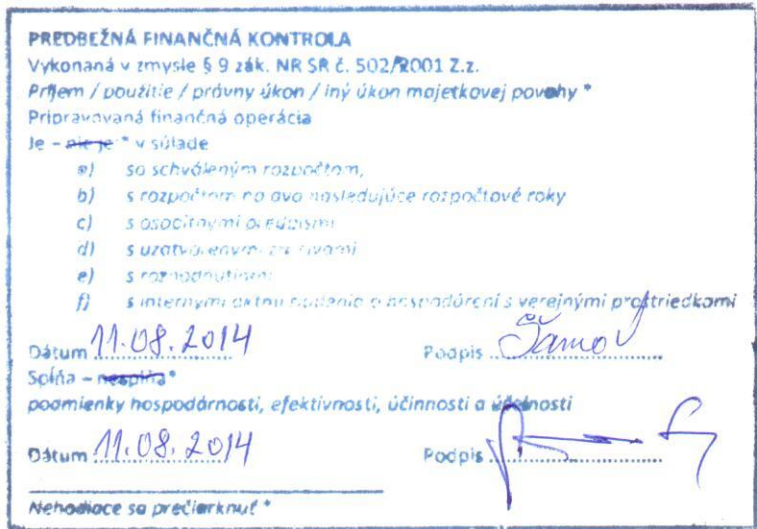 PREDBEŽNÁ FINANČNÁ KONTROLA
Vykonaná v zmysle § 9 zák. NR SR č. 502/2001 Z.z.
Príjem / použitie / právny úkon / iný úkon majetkovej povahy *
Pripravovaná finančná operácia
Je – nie je * v súlade
a) so schváleným rozpočtom,
b) s rozpočtom na dva nasledujúce rozpočtové roky
c) s osobitnými predpismi
d) s uzatvorenými zmluvami
e) s rozhodnutiami
f) s internými aktmi riadenia o hospodárení s verejnými prostriedkami
Dátum 11.08.2014 Podpis
Spĺňa – nespĺňa *
podmienky hospodárnosti, efektívnosti, účinnosti a účelnosti
Dátum 11.08.2014 Podpis
Nehodiace sa prečiarknuť *